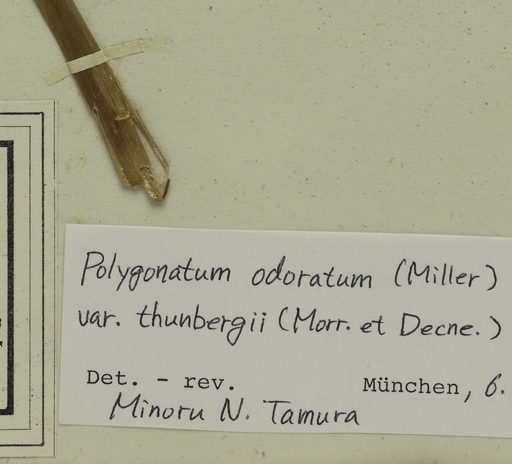 Polygonatum odoratum (Miller)
var. thunbergii (Morr. et Decne.)
Det. - rev. München, 6.
Minoru N. Tamura